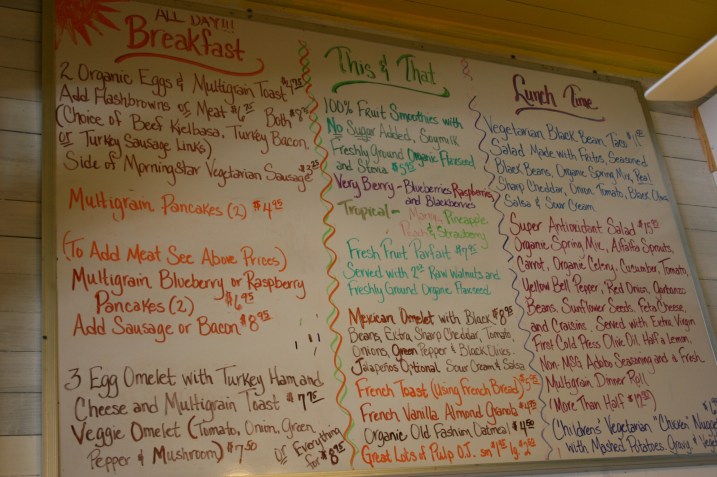 ALL DAY!!!
Breakfast
2 Organic Eggs & Multigrain Toast $4.95
Add Hashbrowns or Meat $6.75 Both $8.
(Choice of Beef Kielbasa, Turkey Bacon
or Turkey Sausage Links)
Side of Morningstar Vegetarian Sausage
Multigrain Pancakes (2) $4.95
(To Add Meat See Above Prices)
Multigrain Blueberry or Raspberry
Pancakes (2) $6.95
Add Sausage or Bacon $8.95
3 Egg Omelet with Turkey Ham and
Cheese and Multigrain Toast $7.75
Veggie Omelet (Tomato, Onion, Green
Pepper & Mushroom) $7.50 or Everything
for $8.95
This & That
100% Fruit Smoothies with
No Sugar Added, Soymilk
Freshly Ground Organic Flaxseed
and Stevia
Very Berry - Blueberries Raspberries
and Blackberries
Tropical - Mango, Pineapple
Peach & Strawberry
Fresh Fruit Parfait
Served with Raw Walnuts and
Freshly Ground Organic Flaxseed
Mexican Omelet with Black $8.95
Beans, Extra Sharp Cheddar, Tomato,
Onions, Green Pepper & Black Olives.
Jalapeños Optional Sour Cream & Salsa
French Toast (Using French Bread)
French Vanilla Almond Granola
Organic Old Fashion Oatmeal
Great Lots of Pulp O.J. sm lg.
Lunch Time
Vegetarian Black Bean Taco
Salad Made with Fritos, Seasoned
Black Beans, Organic Spring Mix, Real
Sharp Cheddar, Onion, Tomato, Black Olives
Salsa & Sour Cream
Super Antioxidant Salad
Organic Spring Mix, Alfalfa Sprouts,
Carrot, Organic Celery, Cucumber, Tomato,
Yellow Bell Pepper, Red Onion, Garbanzo
Beans, Sunflower Seeds, Feta Cheese
and Craisins, Served with Extra Virgin
First Cold Press Olive Oil, Half a Lemon,
Non-MSG Adobo Seasoning and a Fresh
Multigrain Dinner Roll
"More Than Half"
Childrens Vegetarian "Chicken" Nugget
with Mashed Potatoes, Gravy &